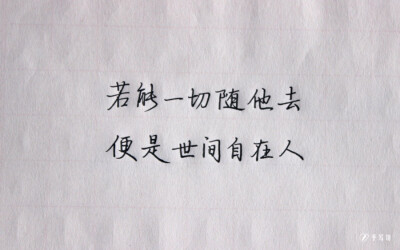 若能一切随他去
便是世间自在人